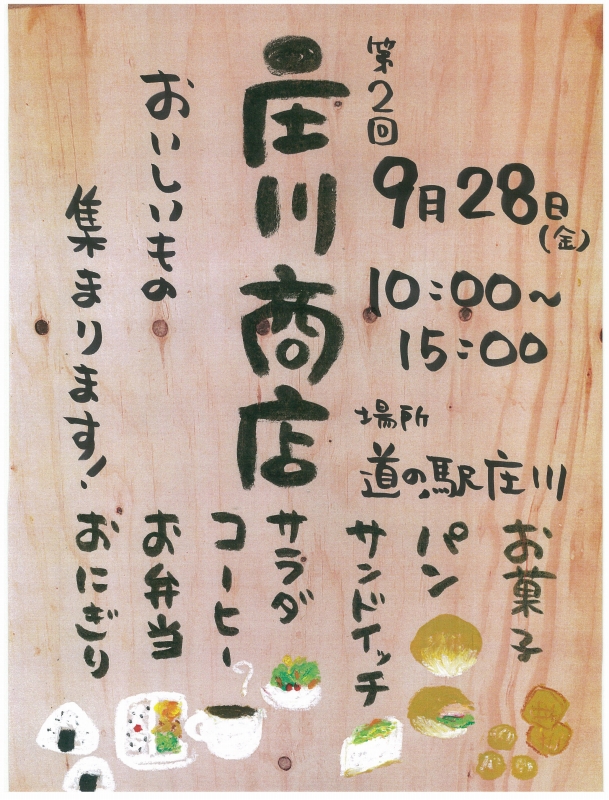 第2回
9月28日(金)
10:00~
15:00
場所
道の駅庄川
庄川商店
おいしいもの
集まります!
お菓子
パン
サンドイッチ
サラダ
コーヒー
お弁当
おにぎり